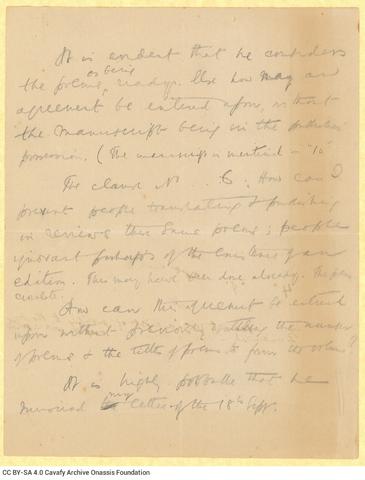 It is evident that he considers
the poems as being ready. Else how may an
agreement be entered upon, without
the manuscript being in the publishers'
possession. (The manuscript is mentioned in "10"
The clause No .. 6: How can I
prevent people translating & publishing
in reviews these same poems; people
ignorant perhaps of the existence of an
edition. This may have been done already. The poems
circulate.
How can this agreement be entered
upon without previously settling the number
of poems & the titles of poems to form the volume?
It is highly probable that he
received my letter of the 18th Sept.
CC BY-SA 4.0 Cavafy Archive Onassis Foundation